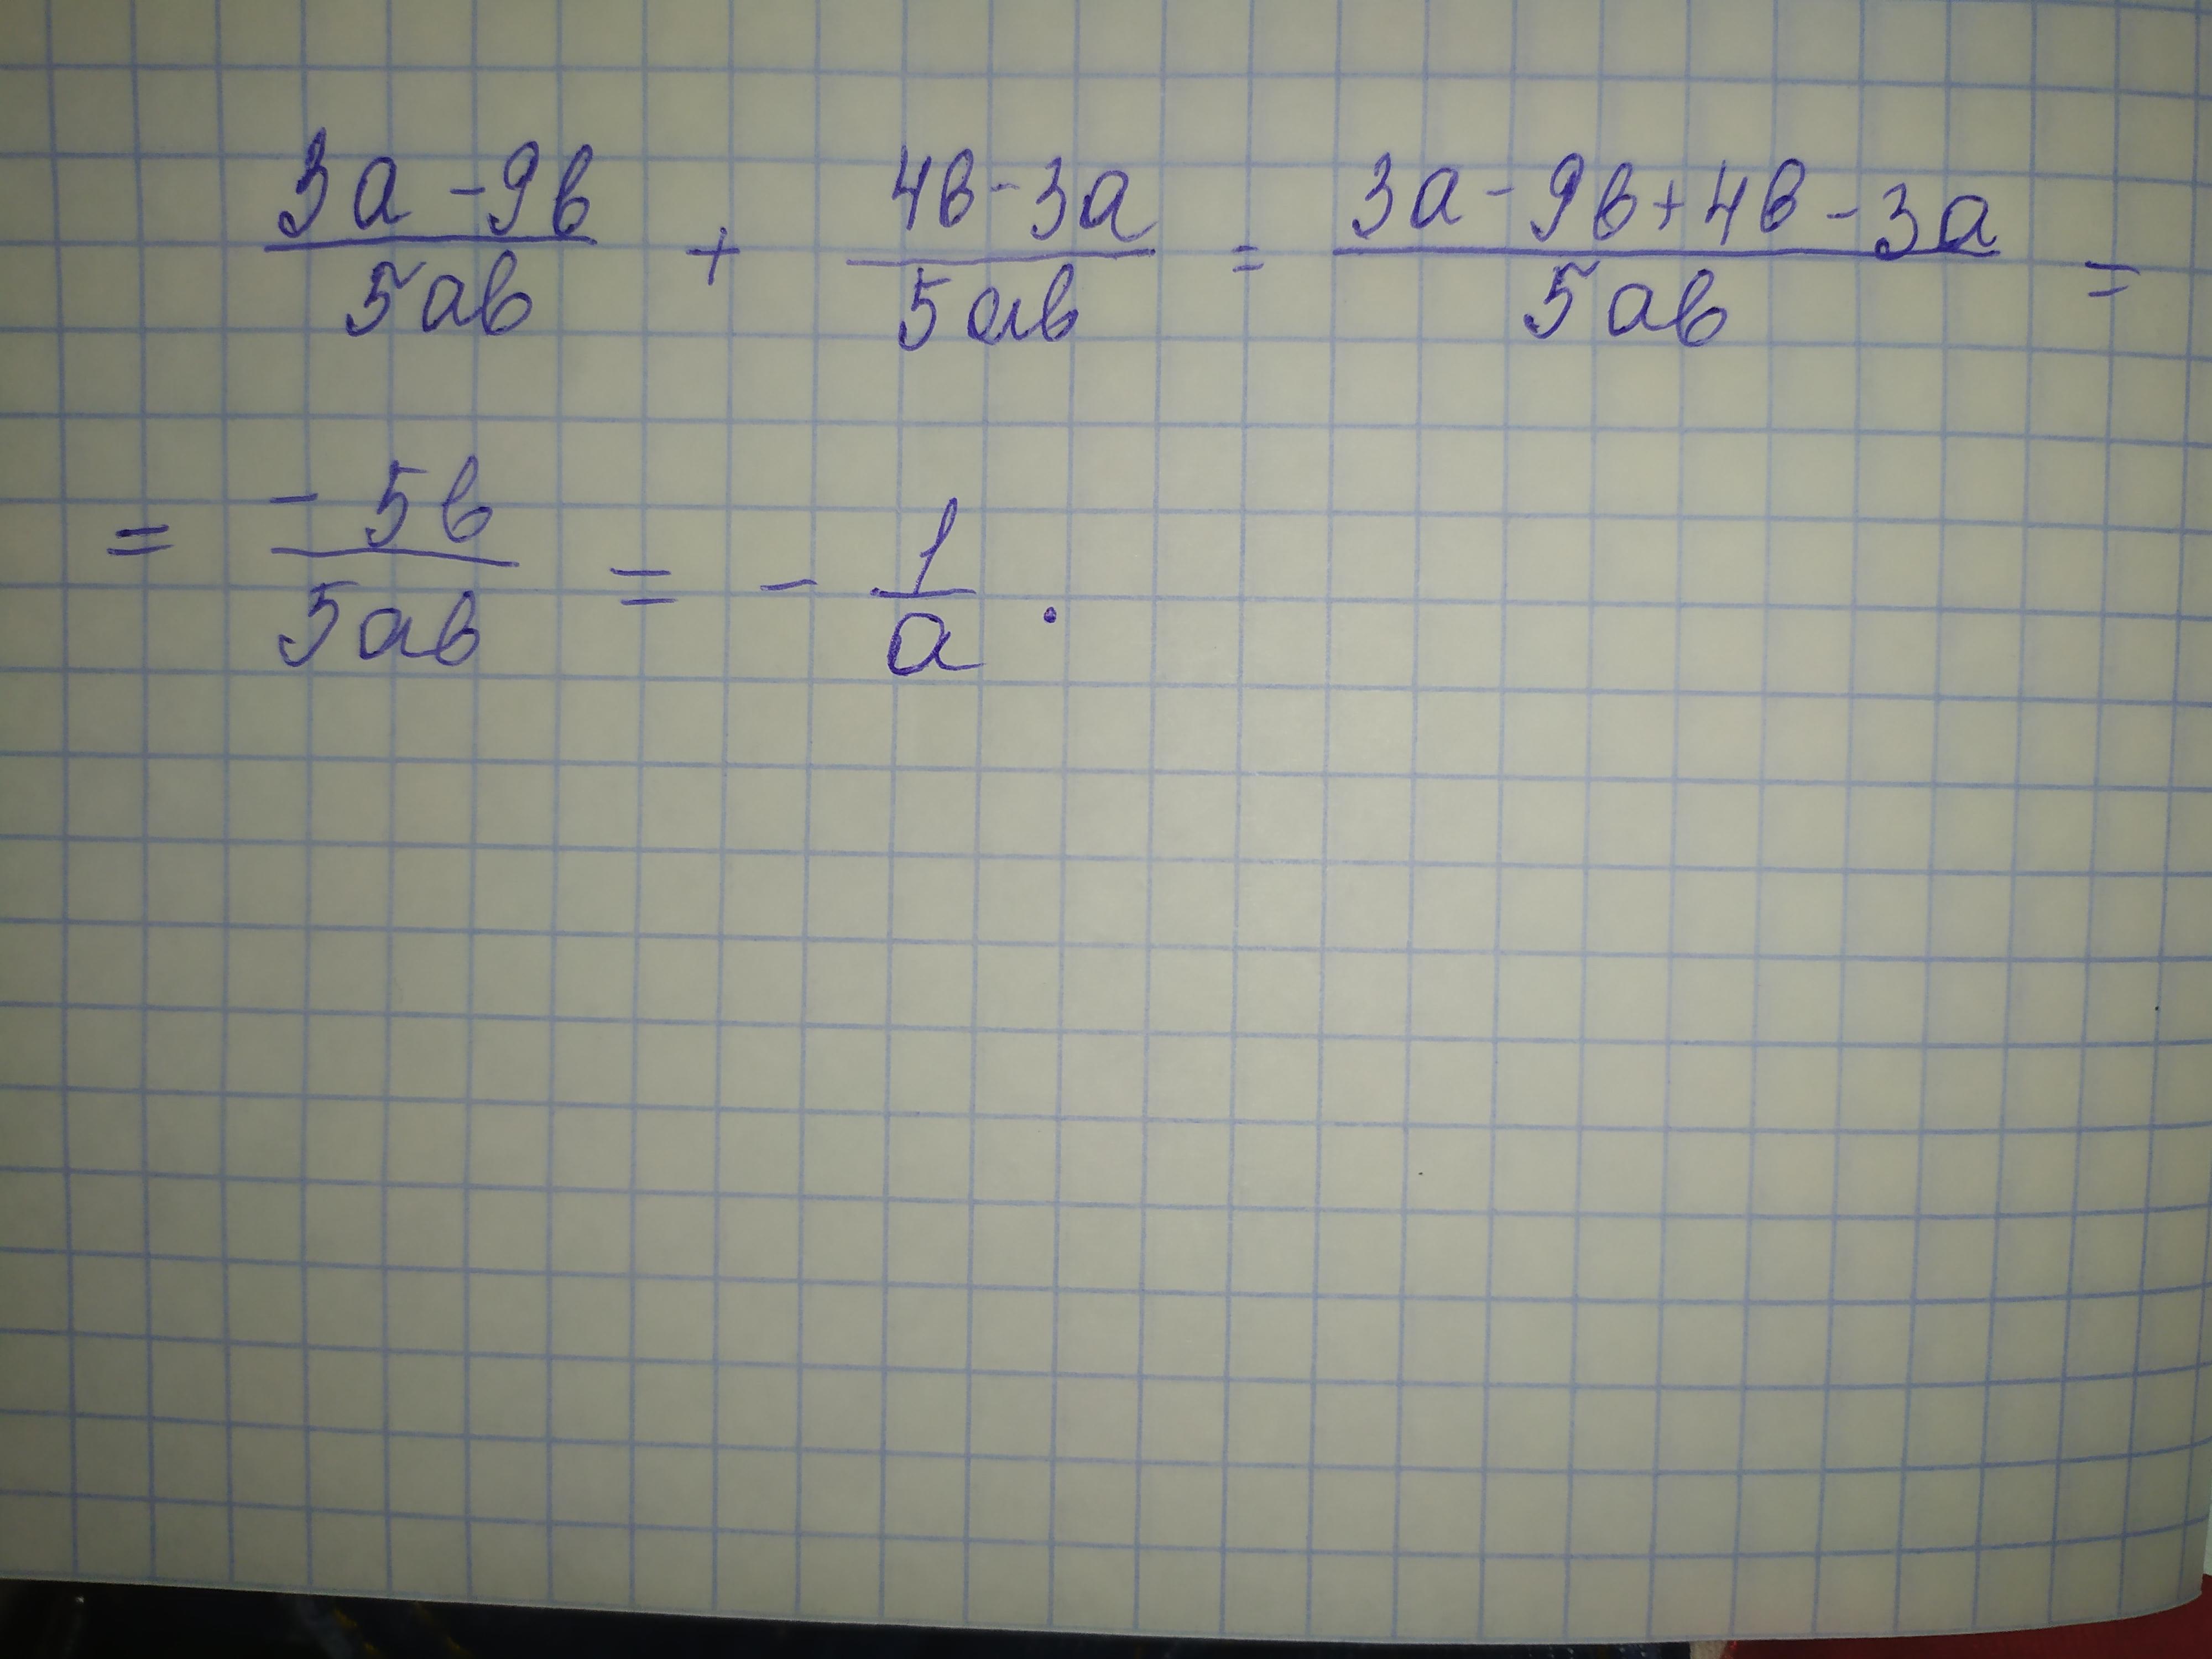 (3a - 9b)/(5ab) + (4b - 3a)/(5ab) = (3a - 9b + 4b - 3a)/(5ab) =
= (- 5b)/(5ab) = - 1/a .